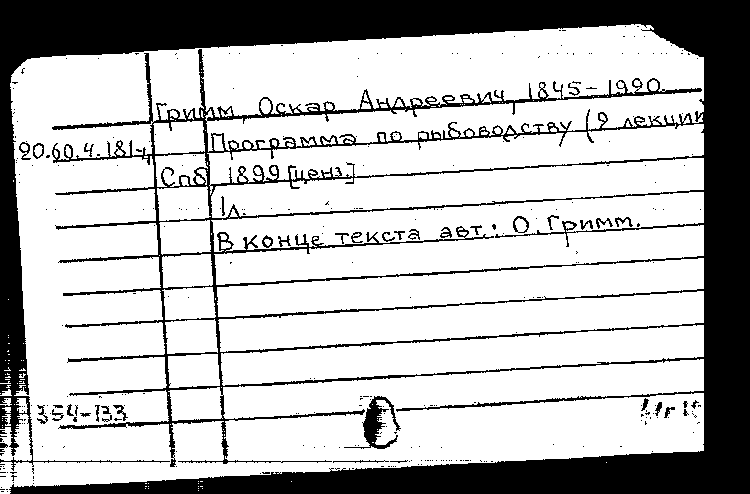 Гримм, Оскар Андреевич, 1845-1920.
20.60.4.181-ч, Программа по рыбоводству (9 лекций)
Спб, 1899 [ценз.]
1 л.
В конце текста авт.: О. Гримм.
354-133